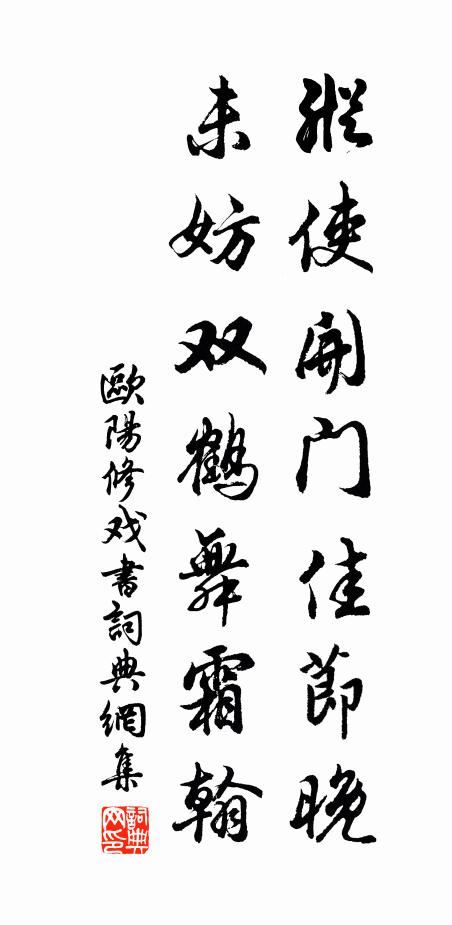 縱使開門佳節晚
未妨双鶴舞霜翰
歐陽修戏書詞典網集
詞典网印